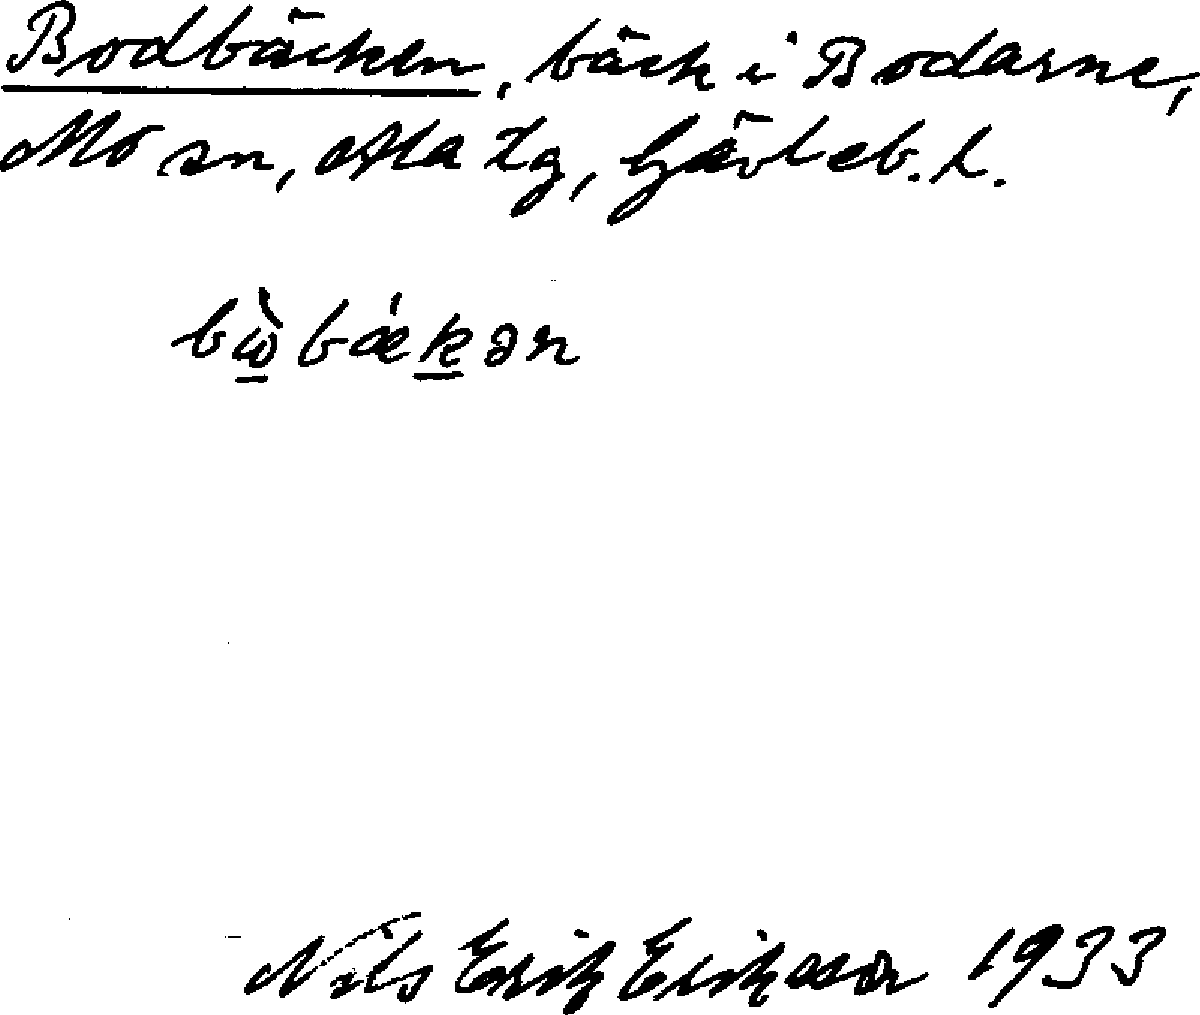 Bodbäcken, bäck i Bodarne,
Mo sn, Ala tg, Gävleb. l.
bὼ̱bǽḵən
Nils Erik Eriksson 1933